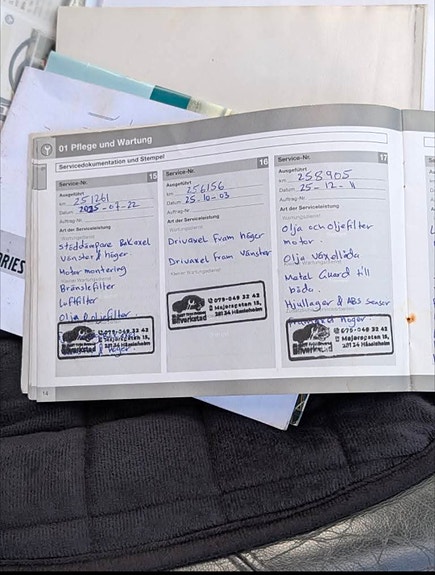 01 Pflege und Wartung
Servicedokumentation und Stempel
Service-Nr. 15
Ausgeführt
km 251261
Datum 2025-07-22
Auftrag-Nr.
Art der Serviceleistung
Wartungsdienst
Stöddämpare Bakaxel
Vänster & höger
Motor montering
Bränslefilter
Luftfilter
Olja & oljefilter.
073-048 32 42
Majorsgatan 15,
281 34 Hässleholm
Bilverkstad
Service-Nr. 16
Ausgeführt
km 256156
Datum 25-10-03
Auftrag-Nr.
Art der Serviceleistung
Wartungsdienst
Drivaxel fram höger
Drivaxel fram vänster
Majorsgatan 15,
281 34 Hässleholm
Bilverkstad
Service-Nr. 17
Ausgeführt
km 258905
Datum 25-12-11
Auftrag-Nr.
Art der Serviceleistung
Wartungsdienst
Olja och oljefilter
motor.
Olja växellåda
Metal Guard till
båda.
Hjullager & ABS Sensor
höger.
Majorsgatan 15,
281 34 Hässleholm
Bilverkstad
14
RIES